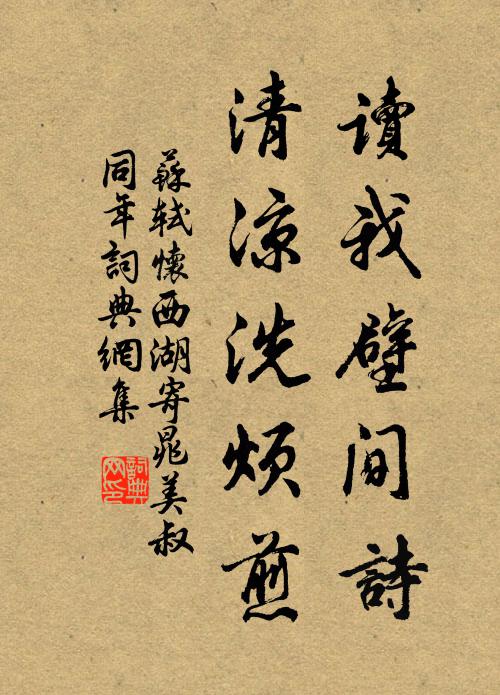 讀我壁間詩
清涼洗煩煎
蘇軾懷西湖寄晁美叔
同年詞典網集
詞典网印